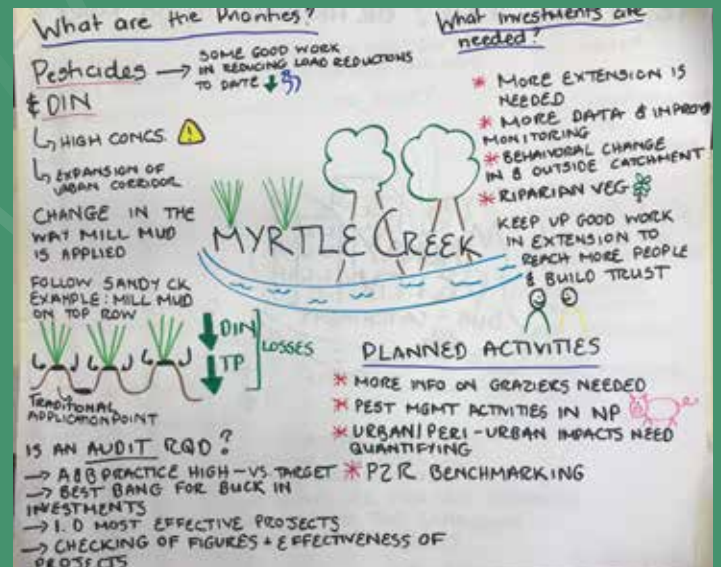 What are the Priorities?
Pesticides → SOME GOOD WORK
IN REDUCING LOAD REDUCTIONS
TO DATE
& DIN
HIGH CONCS.
EXPANSION OF
URBAN CORRIDOR
CHANGE IN THE
WAY MILL MUD
IS APPLIED
FOLLOW SANDY CK
EXAMPLE: MILL MUD
ON TOP ROW
DIN
TP
LOSSES
TRADITIONAL
APPLICATION POINT
IS AN AUDIT RQD?
→ A&B PRACTICE HIGH - VS. TARGET
→ BEST BANG FOR BUCK IN
INVESTMENTS
→ I.D MOST EFFECTIVE PROJECTS
→ CHECKING OF FIGURES + EFFECTIVENESS OF
PROJECTS
MYRTLE CREEK
What investments are
needed?
* MORE EXTENSION IS
NEEDED
* MORE DATA & IMPROV
MONITORING
* BEHAIVORAL CHANGE
IN & OUTSIDE CATCHMENT
* RIPARIAN VEG
KEEP UP GOOD WORK
IN EXTENSION TO
REACH MORE PEOPLE
& BUILD TRUST
PLANNED ACTIVITIES
* MORE INFO ON GRAZIERS NEEDED
* PEST MGMT ACTIVITIES IN NP
* URBAN/PERI-URBAN IMPACTS NEED
QUANTIFYING
* P2R BENCHMARKING